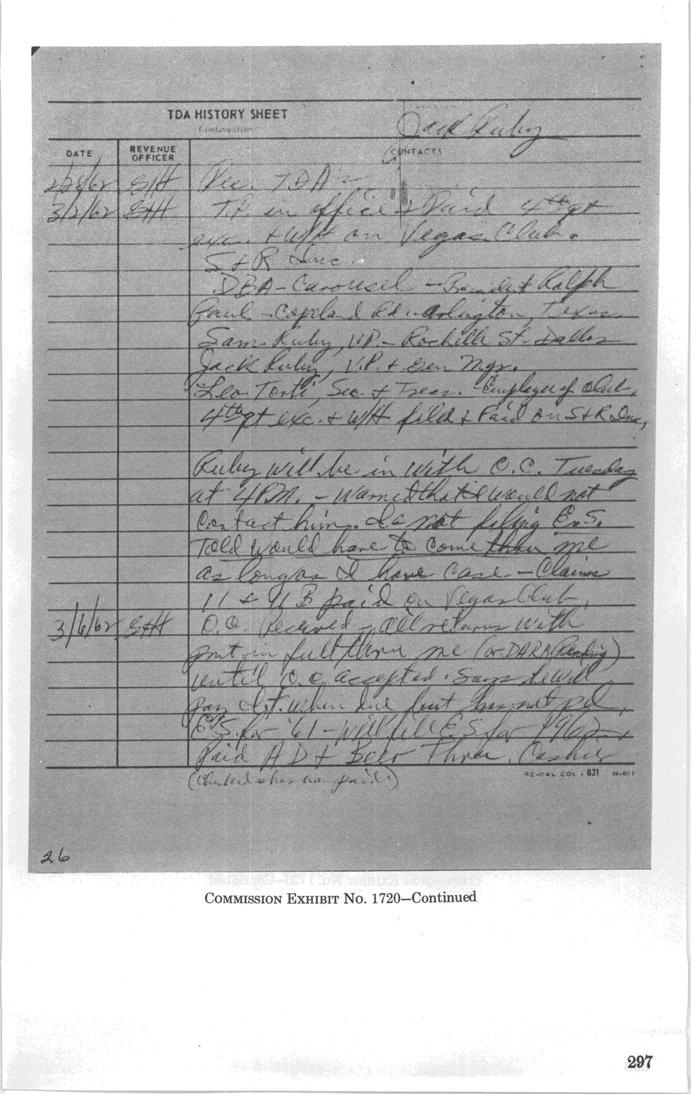 TDA HISTORY SHEET
Continuation
Jack Ruby
DATE
REVENUE OFFICER
CONTACTS
2/28/62 Rec. TDA's
3/2/62 T.P. in office & Paid 4th qt
exc. & W/H on Vegas Club.
S & R Inc.
DBA - Carousel - President Ralph
Paul - Copeland Rd. Arlington, Texas
Sam Ruby, V.P. - Rochelle St. Dallas
Jack Ruby, V.P. & Gen Mgr.
Leo Torti, Sec. & Treas. Employee of Club.
4th qt exc. & W/H filed & Paid on S & R Inc,
Ruby will be in with O.C. Tuesday
at 4 PM. - Warned that I would not
Contact him. Is not filing E.S.
Told would have to come thru me
as long as I have case - Claims
11 & 11B paid on Vegas Club.
3/6/62 O.C. Received - all returns with
pmt in full thru me
until O.C. accepted. Says he will
pay when due but has not pd.
E.S. for '61 - will file E.S. for 1962.
Paid A D & Thru Cashier
RC-DAL COL - 821
26
COMMISSION EXHIBIT No. 1720—Continued
297